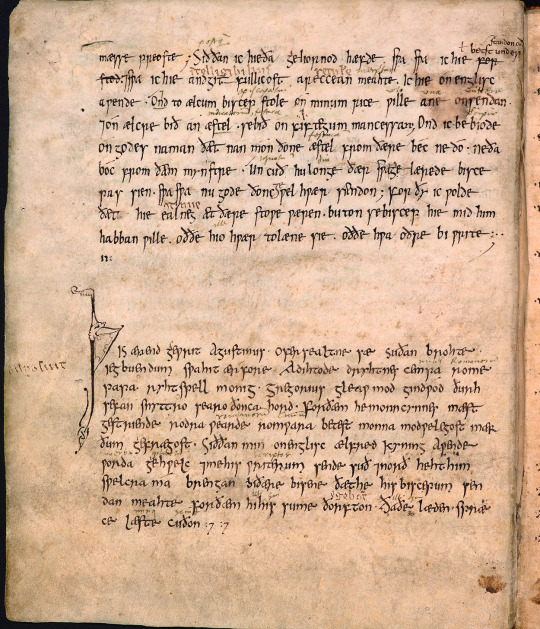 mæsse preoste · Siððan ic hie ða geliornod hæfde · swæ swæ ic hie for
stod · swæ ic hie andgitfullicost areccean meahte · ic hie on englisc
awende · Ond to ælcum biscepstole on minum rice wille ane onsendan ·
Ond on ælcre bið an æstel · se bið on fiftegum mancessa · Ond ic bebiode
on godes naman ðæt nan mon ðone æstel from ðære bec ne do · ne ða
boc from ðæm mynstre · Uncuð hu longe ðær swæ gelærede bisce
pas sien · swæ swæ nu gode ðonc wel hwær siendon · forðy ic wolde
ðæt hie ealneg æt ðære stowe wæren · buton se biscep hie mid him
habban wille · oððe hio hwær to læne sie · oððe hwa oðre bi write :·
Þis ærend gewrit Agustinus · ofer sealtne sæ suðan brohte ·
iegbuendum swæ hit ær fore · Adihtode dryhtnes cempa rome
papa ryhtspell monig · Gregorius gleawmod gindwod ðurh
sefan snyttro searo ðonca hord · forðæm he monncynnes mæst
gestriende rodra wearde romwara betest monna modwelegost mær
ðum gefrægost · Siððan min on englisc ælfred kyning Awende
worda gehwelc ⁊ me his writerum sende suð ⁊ norð heht him
swelcra ma brengan bi ðære bisene ðæt he his biscepum sen
dan meahte forðæm hi his sume ðorfton · ða ðe læden spræ
ce læste cuðon :⁊ :⁊